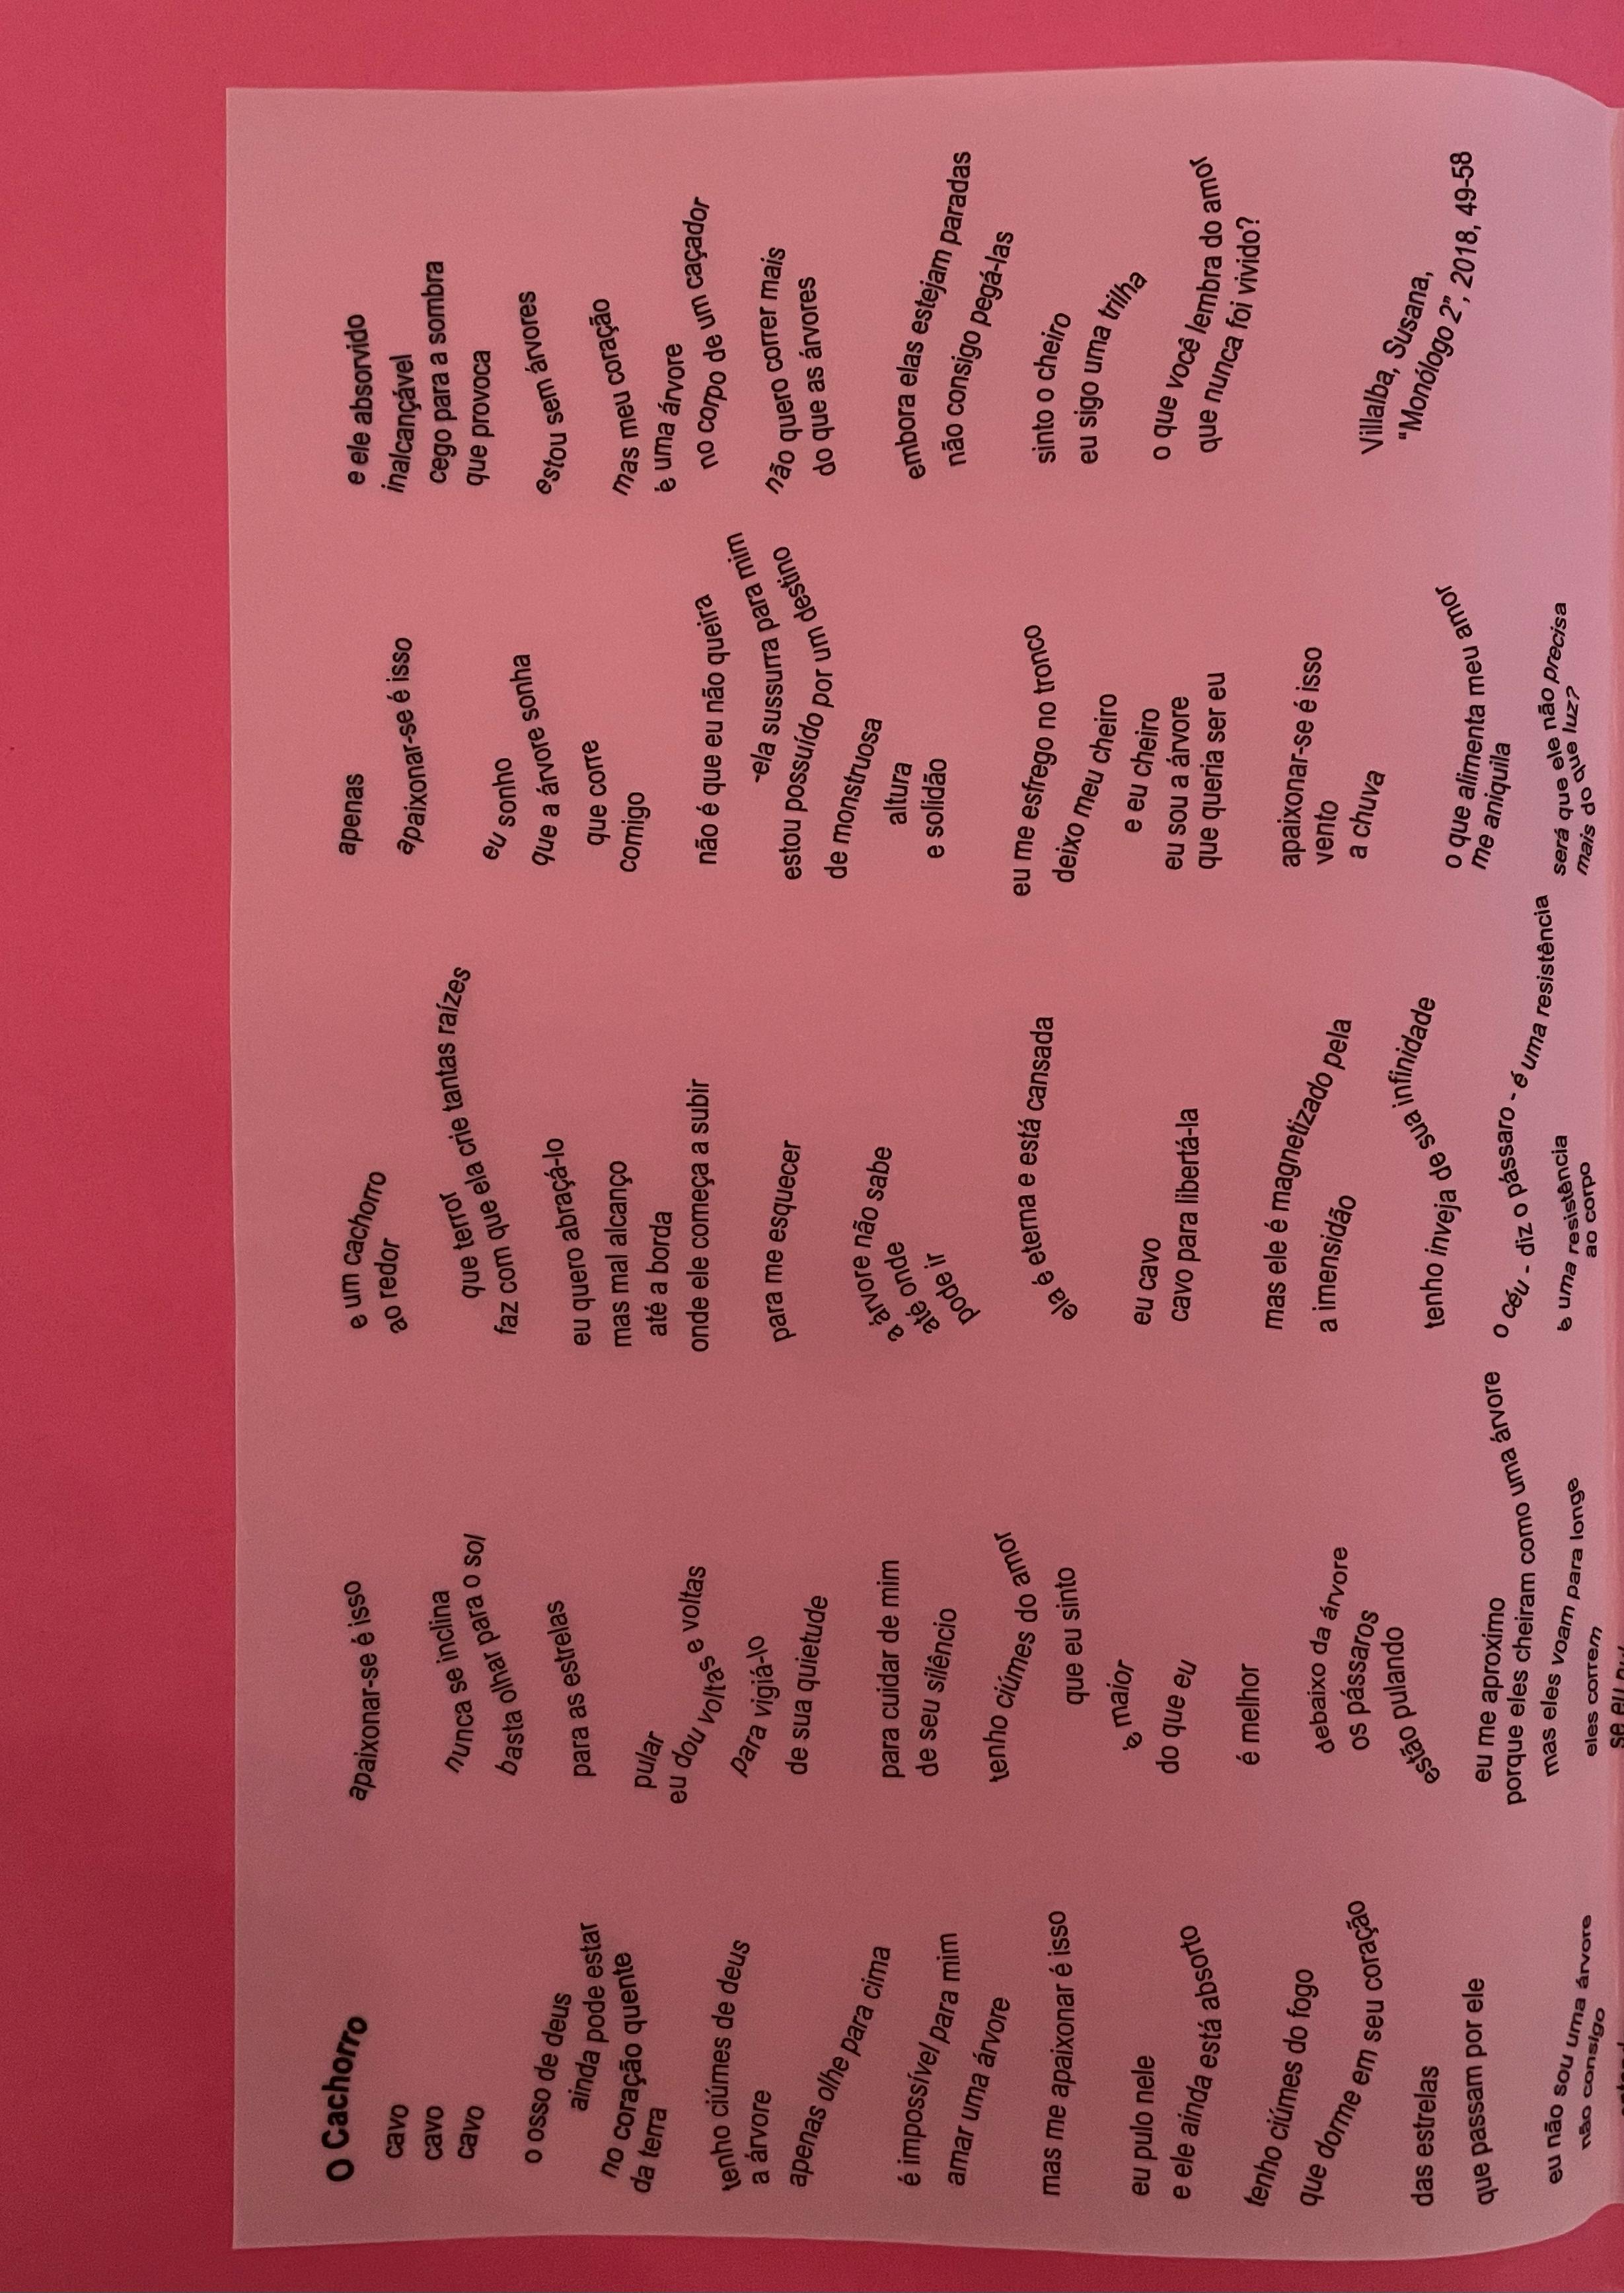 O Cachorro
cavo
cavo
cavo
o osso de deus
ainda pode estar
no coração quente
da terra
tenho ciúmes de deus
a árvore
apenas olhe para cima
é impossível para mim
amar uma árvore
mas me apaixonar é isso
eu pulo nele
e ele ainda está absorto
tenho ciúmes do fogo
que dorme em seu coração
das estrelas
que passam por ele
eu não sou uma árvore
não consigo
apaixonar-se é isso
nunca se inclina
basta olhar para o sol
para as estrelas
pular
eu dou voltas e voltas
para vigiá-lo
de sua quietude
para cuidar de mim
de seu silêncio
tenho ciúmes do amor
que eu sinto
é maior
do que eu
é melhor
debaixo da árvore
os pássaros
estão pulando
eu me aproximo
porque eles cheiram como uma árvore
mas eles voam para longe
eles correm
se eu
e um cachorro
ao redor
que terror
faz com que ela crie tantas raízes
eu quero abraçá-lo
mas mal alcanço
até a borda
onde ele começa a subir
para me esquecer
a árvore não sabe
até onde
pode ir
ela é eterna e está cansada
eu cavo
cavo para libertá-la
mas ele é magnetizado pela
a imensidão
tenho inveja de sua infinidade
o céu - diz o pássaro - é uma resistência
é uma resistência
ao corpo
apenas
apaixonar-se é isso
eu sonho
que a árvore sonha
que corre
comigo
não é que eu não queira
-ela sussurra para mim
estou possuído por um destino
de monstruosa
altura
e solidão
eu me esfrego no tronco
deixo meu cheiro
e eu cheiro
eu sou a árvore
que queria ser eu
apaixonar-se é isso
vento
a chuva
o que alimenta meu amor
me aniquila
será que ele não precisa
mais do que luz?
e ele absorvido
inalcançável
cego para a sombra
que provoca
estou sem árvores
mas meu coração
é uma árvore
no corpo de um caçador
não quero correr mais
do que as árvores
embora elas estejam paradas
não consigo pegá-las
sinto o cheiro
eu sigo uma trilha
o que você lembra do amor
que nunca foi vivido?
Villalba, Susana,
“Monólogo 2”, 2018, 49-58